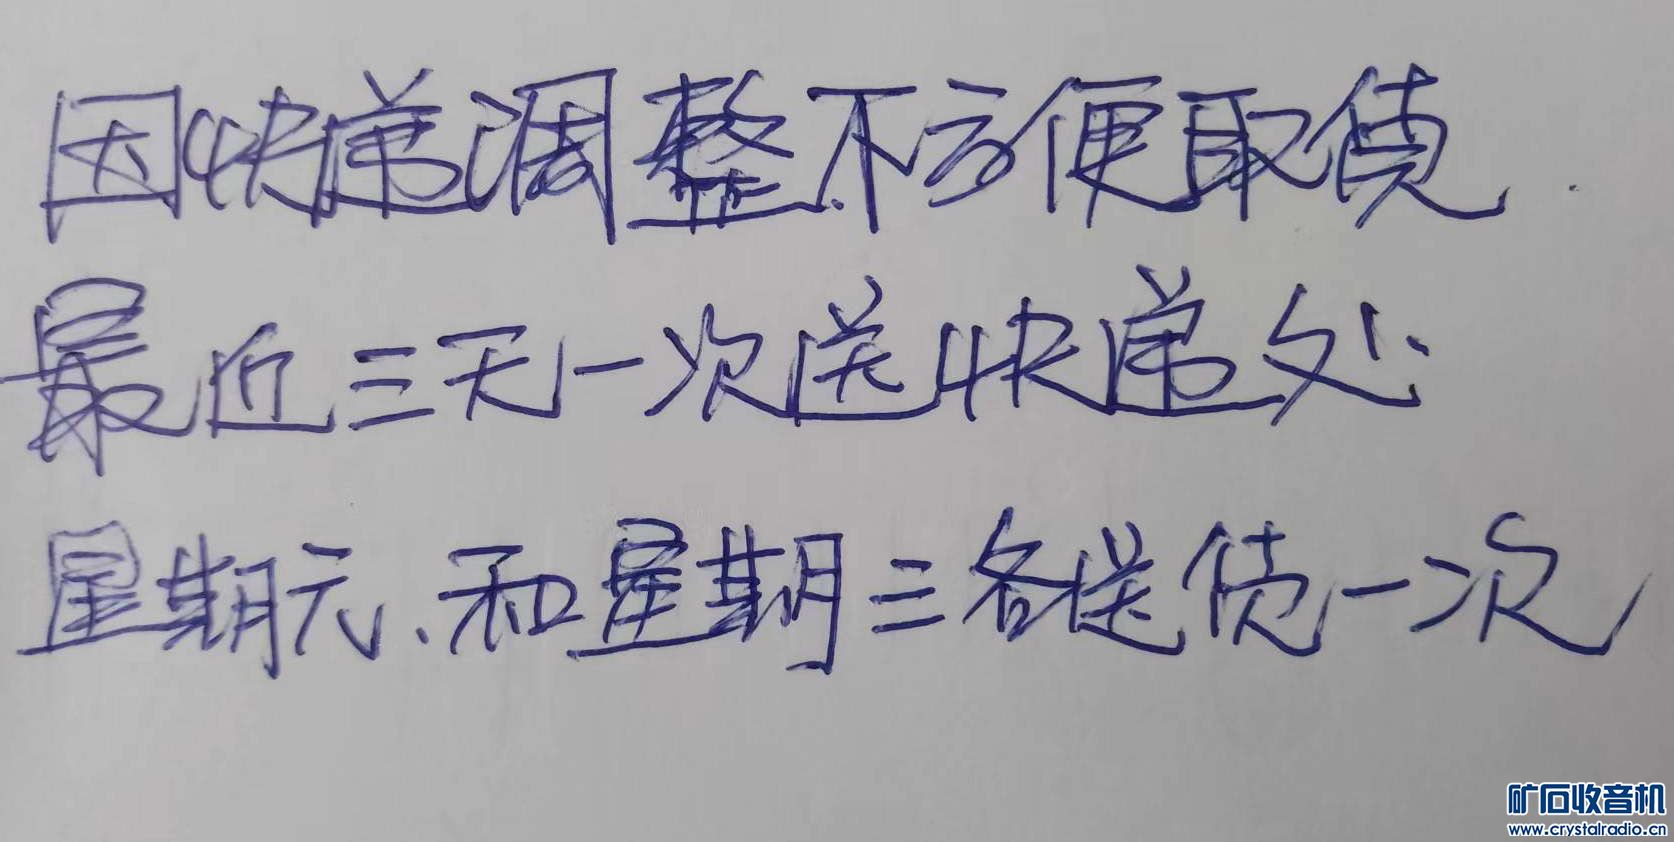 因快递调整不方便取货.
最近三天一次送快递处.
星期六.和星期三各送货一次
矿石收音机
www.crystalradio.cn